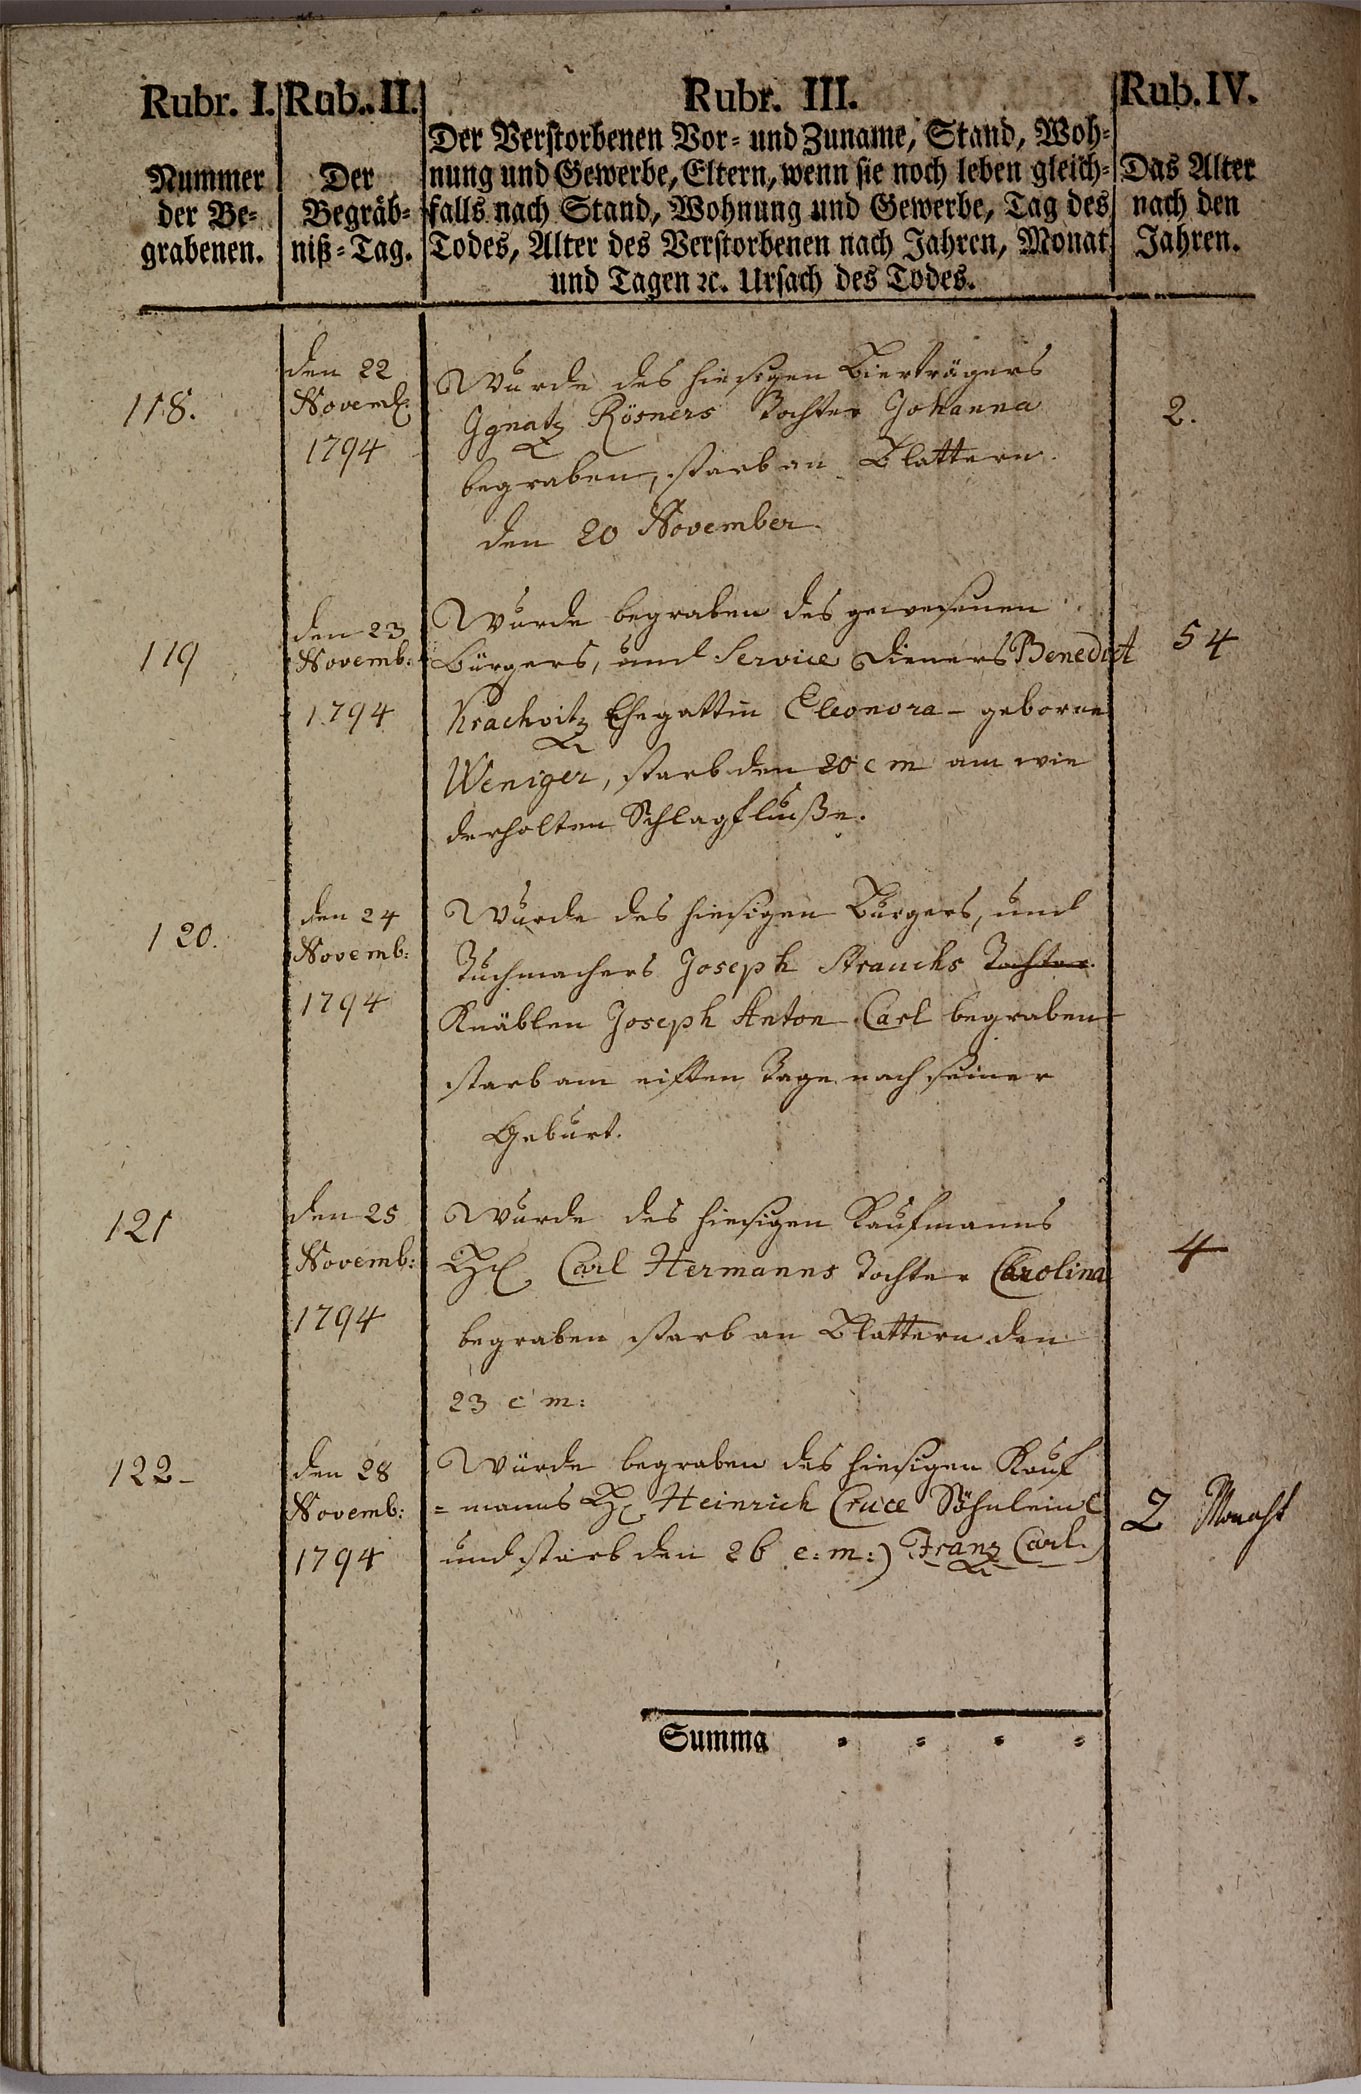 Rubr. I. Rub. II. Rubr. III. Rub. IV.
Nummer der Be=
grabenen.
Der
Begräb=
niß=Tag.
Der Verstorbenen Vor= und Zuname, Stand, Woh=
nung und Gewerbe, Eltern, wenn sie noch leben gleich=
falls nach Stand, Wohnung und Gewerbe, Tag des
Todes, Alter des Verstorbenen nach Jahren, Monat
und Tagen ꝛc. Ursach des Todes.
Das Alter
nach den
Jahren.
118.
den 22
Novemb.
1794
Wurde des hiesigen Bierträgers
Ignatz Rösners Tochter Johanna
begraben, starb an Blattern
den 20 November
2.
119
den 23
Novemb:
1794
Wurde begraben des gewesenen
Bürgers, und Service Dieners Benedict
Krachvitz Ehegattin Eleonora – geborne
Weniger, starb den 20 c m am wie
derholten Schlagfluße.
54
120.
den 24
Novemb:
1794
Wurde des hiesigen Burgers, und
Tuchmachers Joseph Strauchs Tochter
Knäblen Joseph Anton Carl begraben
starb am eilften Tage nach seiner
Geburt.
121
den 25
Novemb:
1794
Wurde des hiesigen Kaufmanns
H. Carl Hermanns Tochter Carolina
begraben starb an Blattern den
23 c m:
4
122–
den 28
Novemb:
1794
Würde begraben des hiesigen Kauf
=manns H. Heinrich Cruce Söhnlein (
und starb den 26 c: m:) Franz Carl.)
2 Monath
Summa = = = =